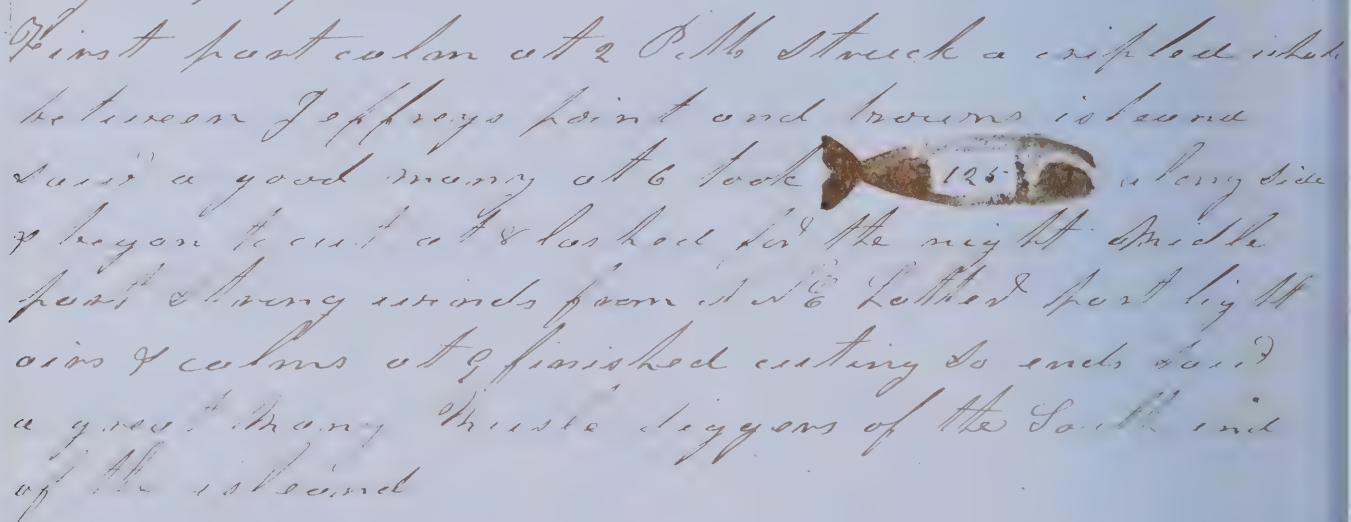 First part calm at 2 P.M struck a cripled whale
between Jeffreys point and browns isleand
saw'd a good many at 6 took 125 along side
& began to cut at 8 lashed for the night Middle
part strong winds from N E Latter part light
airs & calms at 9 finished cuting so ends saw'd
a great many Musle diggers of the South end
of the isleand